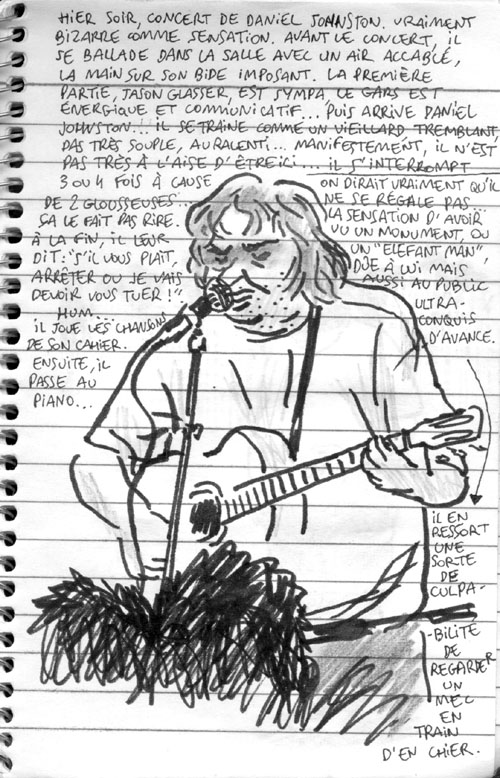 HIER SOIR, CONCERT DE DANIEL JOHNSTON. VRAIMENT
BIZARRE COMME SENSATION. AVANT LE CONCERT, IL
SE BALLADE DANS LA SALLE AVEC UN AIR ACCABLÉ,
LA MAIN SUR SON BIDE IMPOSANT. LA PREMIÈRE
PARTIE, JASON GLASSER, EST SYMPA, LE GARS EST
ÉNERGIQUE ET COMMUNICATIF... PUIS ARRIVE DANIEL
JOHNSTON... IL SE TRAINE COMME UN VIEILLARD TREMBLANT,
PAS TRÈS SOUPLE, AU RALENTI... MANIFESTEMENT, IL N'EST
PAS TRÈS À L'AISE D'ÊTRE ICI... IL S'INTERROMPT
3 OU 4 FOIS À CAUSE
DE 2 GLOUSSEUSES...
SA LE FAIT PAS RIRE.
À LA FIN, IL LEUR
DIT : "S'IL VOUS PLAIT,
ARRÊTER OU JE VAIS
DEVOIR VOUS TUER !"
HUM...
IL JOUE LES CHANSONS
DE SON CAHIER.
ENSUITE, IL
PASSE AU
PIANO...
ON DIRAIT VRAIMENT QU'IL
NE SE RÉGALE PAS.
LA SENSATION D'AVOIR
VU UN MONUMENT, OU
UN "ELEFANT MAN",
DÛE À LUI MAIS
AUSSI AU PUBLIC
ULTRA-
CONQUIS
D'AVANCE.
IL EN
RESSORT
UNE
SORTE
DE
CULPA-
-BILITÉ
DE
REGARDER
UN
MEC
EN
TRAIN
D'EN CHIER.